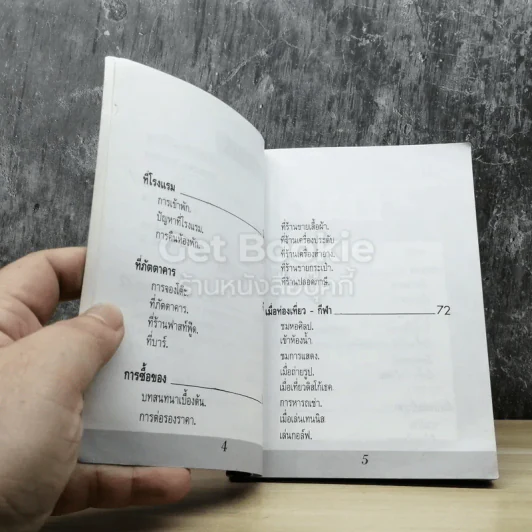 ที่โรงแรม
การเข้าพัก.
ปัญหาที่โรงแรม.
การคืนห้องพัก.
ที่ภัตตาคาร
การจองโต๊ะ.
ที่ภัตตาคาร.
ที่ร้านฟาสท์ฟู๊ด.
ที่บาร์.
การซื้อของ
บทสนทนาเบื้องต้น.
การต่อรองราคา.
4
ที่ร้านขายเสื้อผ้า.
ที่ร้านเครื่องประดับ
ที่ร้านเครื่องสำอาง.
ที่ร้านขายกระเป๋า.
ที่ร้านปลอดภาษี.
เมื่อท่องเที่ยว - กีฬา 72
ชมหอศิลป.
เข้าห้องน้ำ.
ชมการแสดง.
เมื่อถ่ายรูป.
เมื่อเที่ยวดิสโก้เธค
การหารถเช่า.
เมื่อเล่นเทนนิส
เล่นกอล์ฟ.
5
Get Bookie
ร้านหนังสือบุ๊กกี้